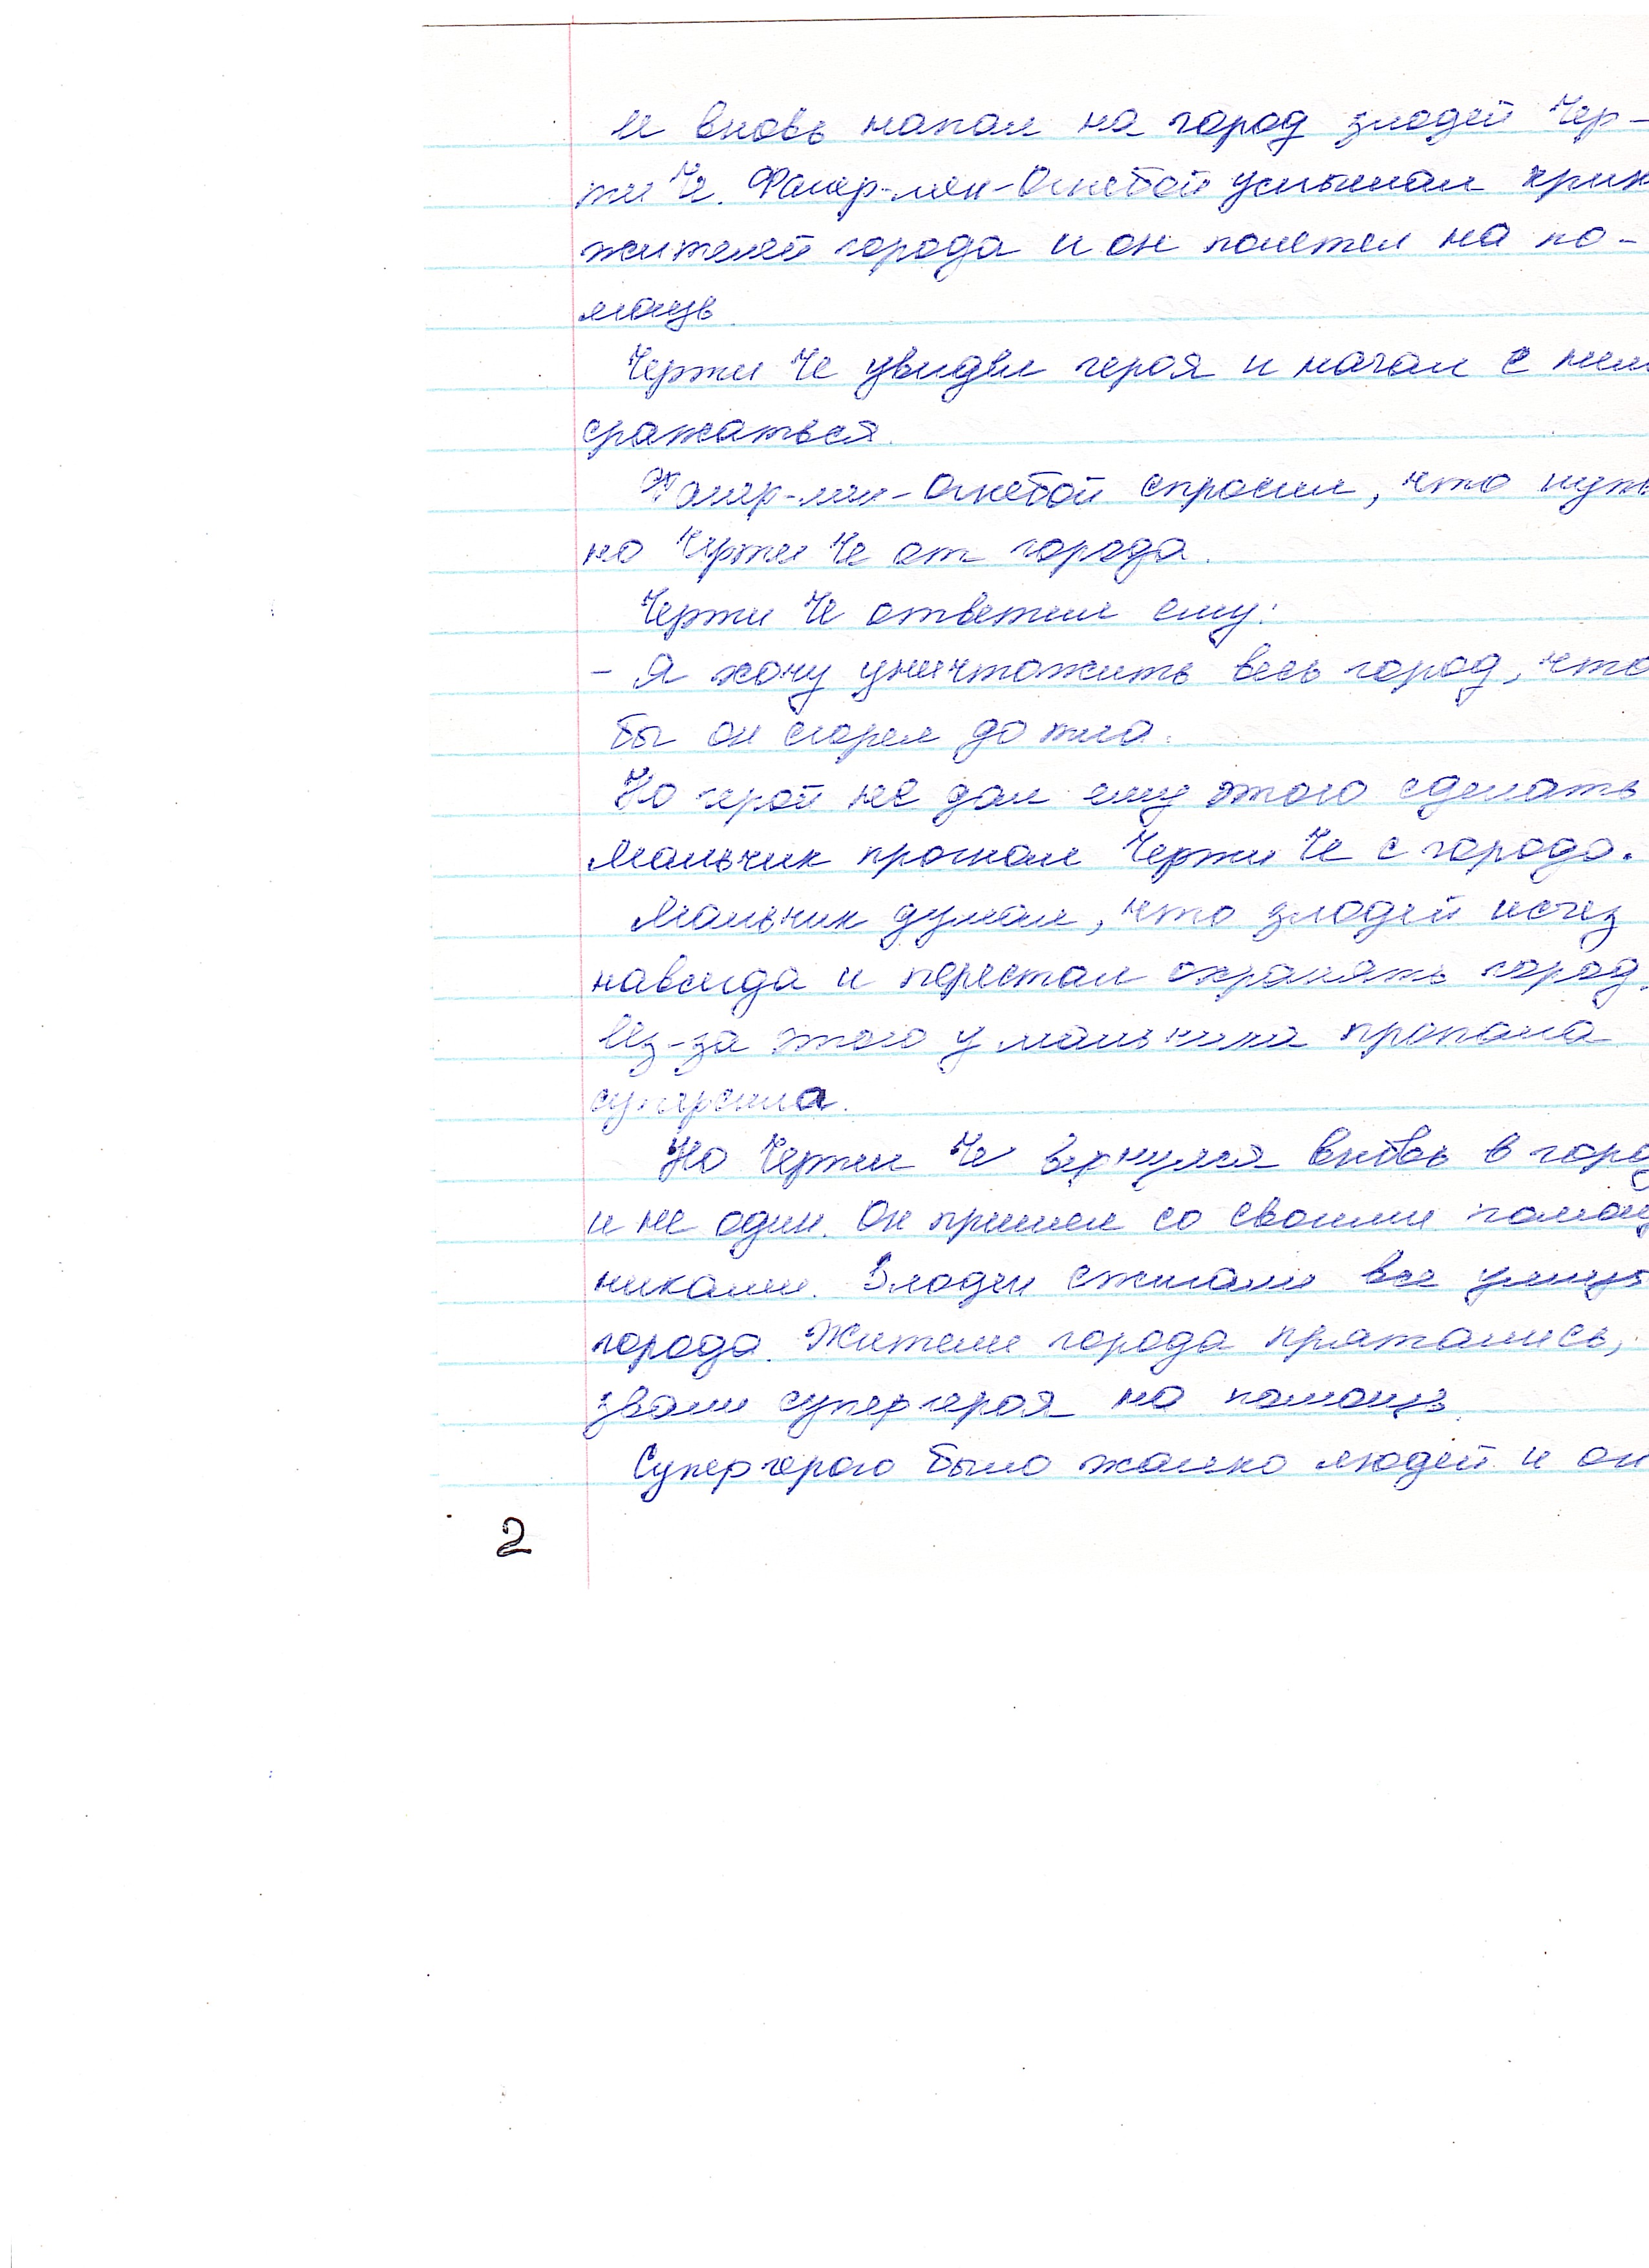 И вновь напал на город злодей Чер-
жи Че. Фаер-мен-Огнебой услышал крик
жителей города и он полетел на по-
мощь.
Чержи Че увидел героя и начал с ним
сражаться.
Фаер-мен-Огнебой спросил, что нуж
но Чержи Че от города.
Чержи Че ответил ему:
- Я хочу уничтожить весь город, что
бы он сгорел до тла.
Но герой не дал ему этого сделать
Мальчик прогнал Чержи Че с города.
Мальчик думал, что злодей исчез
навсегда и перестал охранять город.
Из-за этого у мальчика пропала
суперсила.
Но Чержи Че вернулся вновь в горо
и не один. Он пришел со своими помощ
никами. Злодеи сжигали все улицы
города. Жители города прятались,
звали супергероя на помощь.
Супергерою было жалко людей и он
2